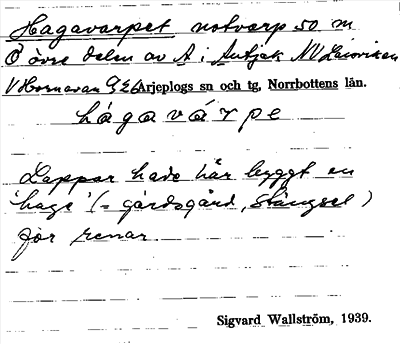 Hagavarpet notvarp 50 m
Ö övre delen av A i Autjak NV Laisviken
V Hornavan G26 Arjeplogs sn och tg, Norrbottens län.
hágavárpe
Lappar hade här byggt en
'hage' (= gårdsgård, stängsel)
för renar.
Sigvard Wallström, 1939.